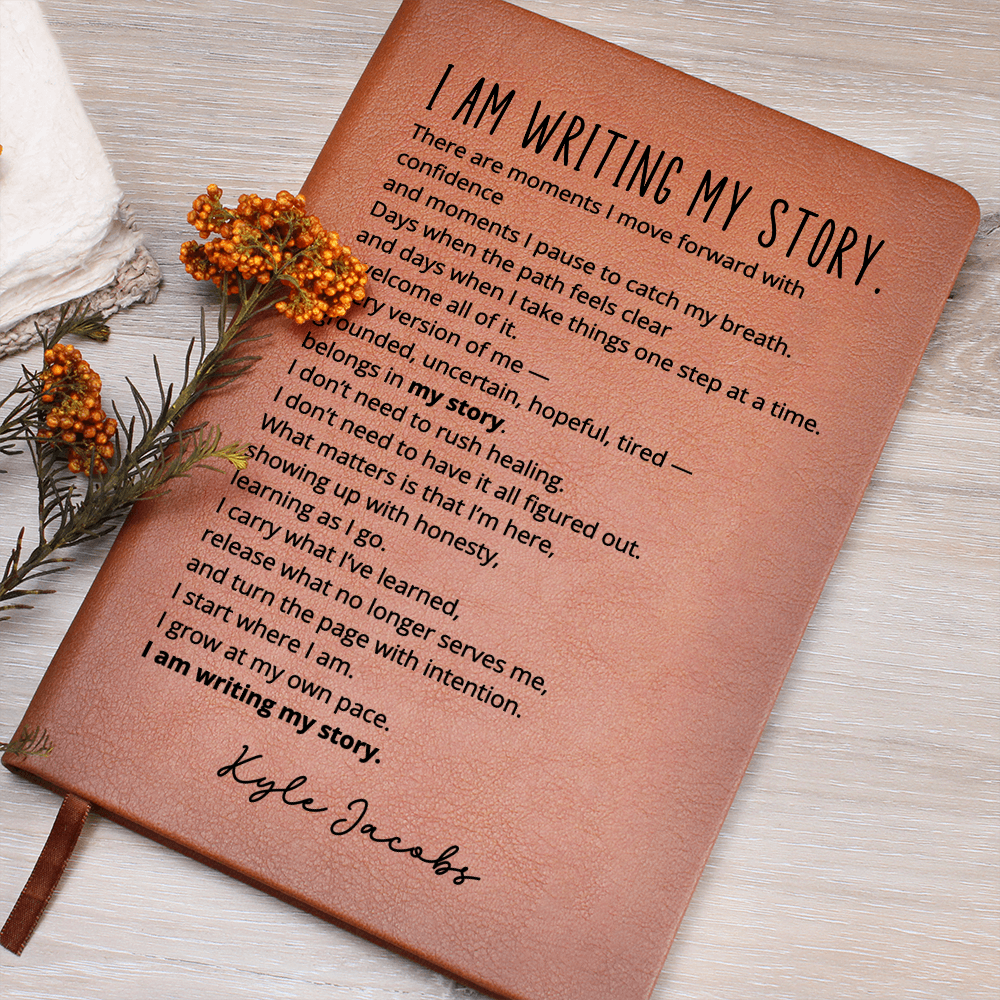 I AM WRITING MY STORY.
There are moments I move forward with
confidence
and moments I pause to catch my breath.
Days when the path feels clear
and days when I take things one step at a time.
welcome all of it.
version of me —
grounded, uncertain, hopeful, tired —
belongs in my story.
I don't need to rush healing.
I don't need to have it all figured out.
What matters is that I'm here,
showing up with honesty,
learning as I go.
I carry what I've learned,
release what no longer serves me,
and turn the page with intention.
I start where I am.
I grow at my own pace.
I am writing my story.
Kyle Jacobs